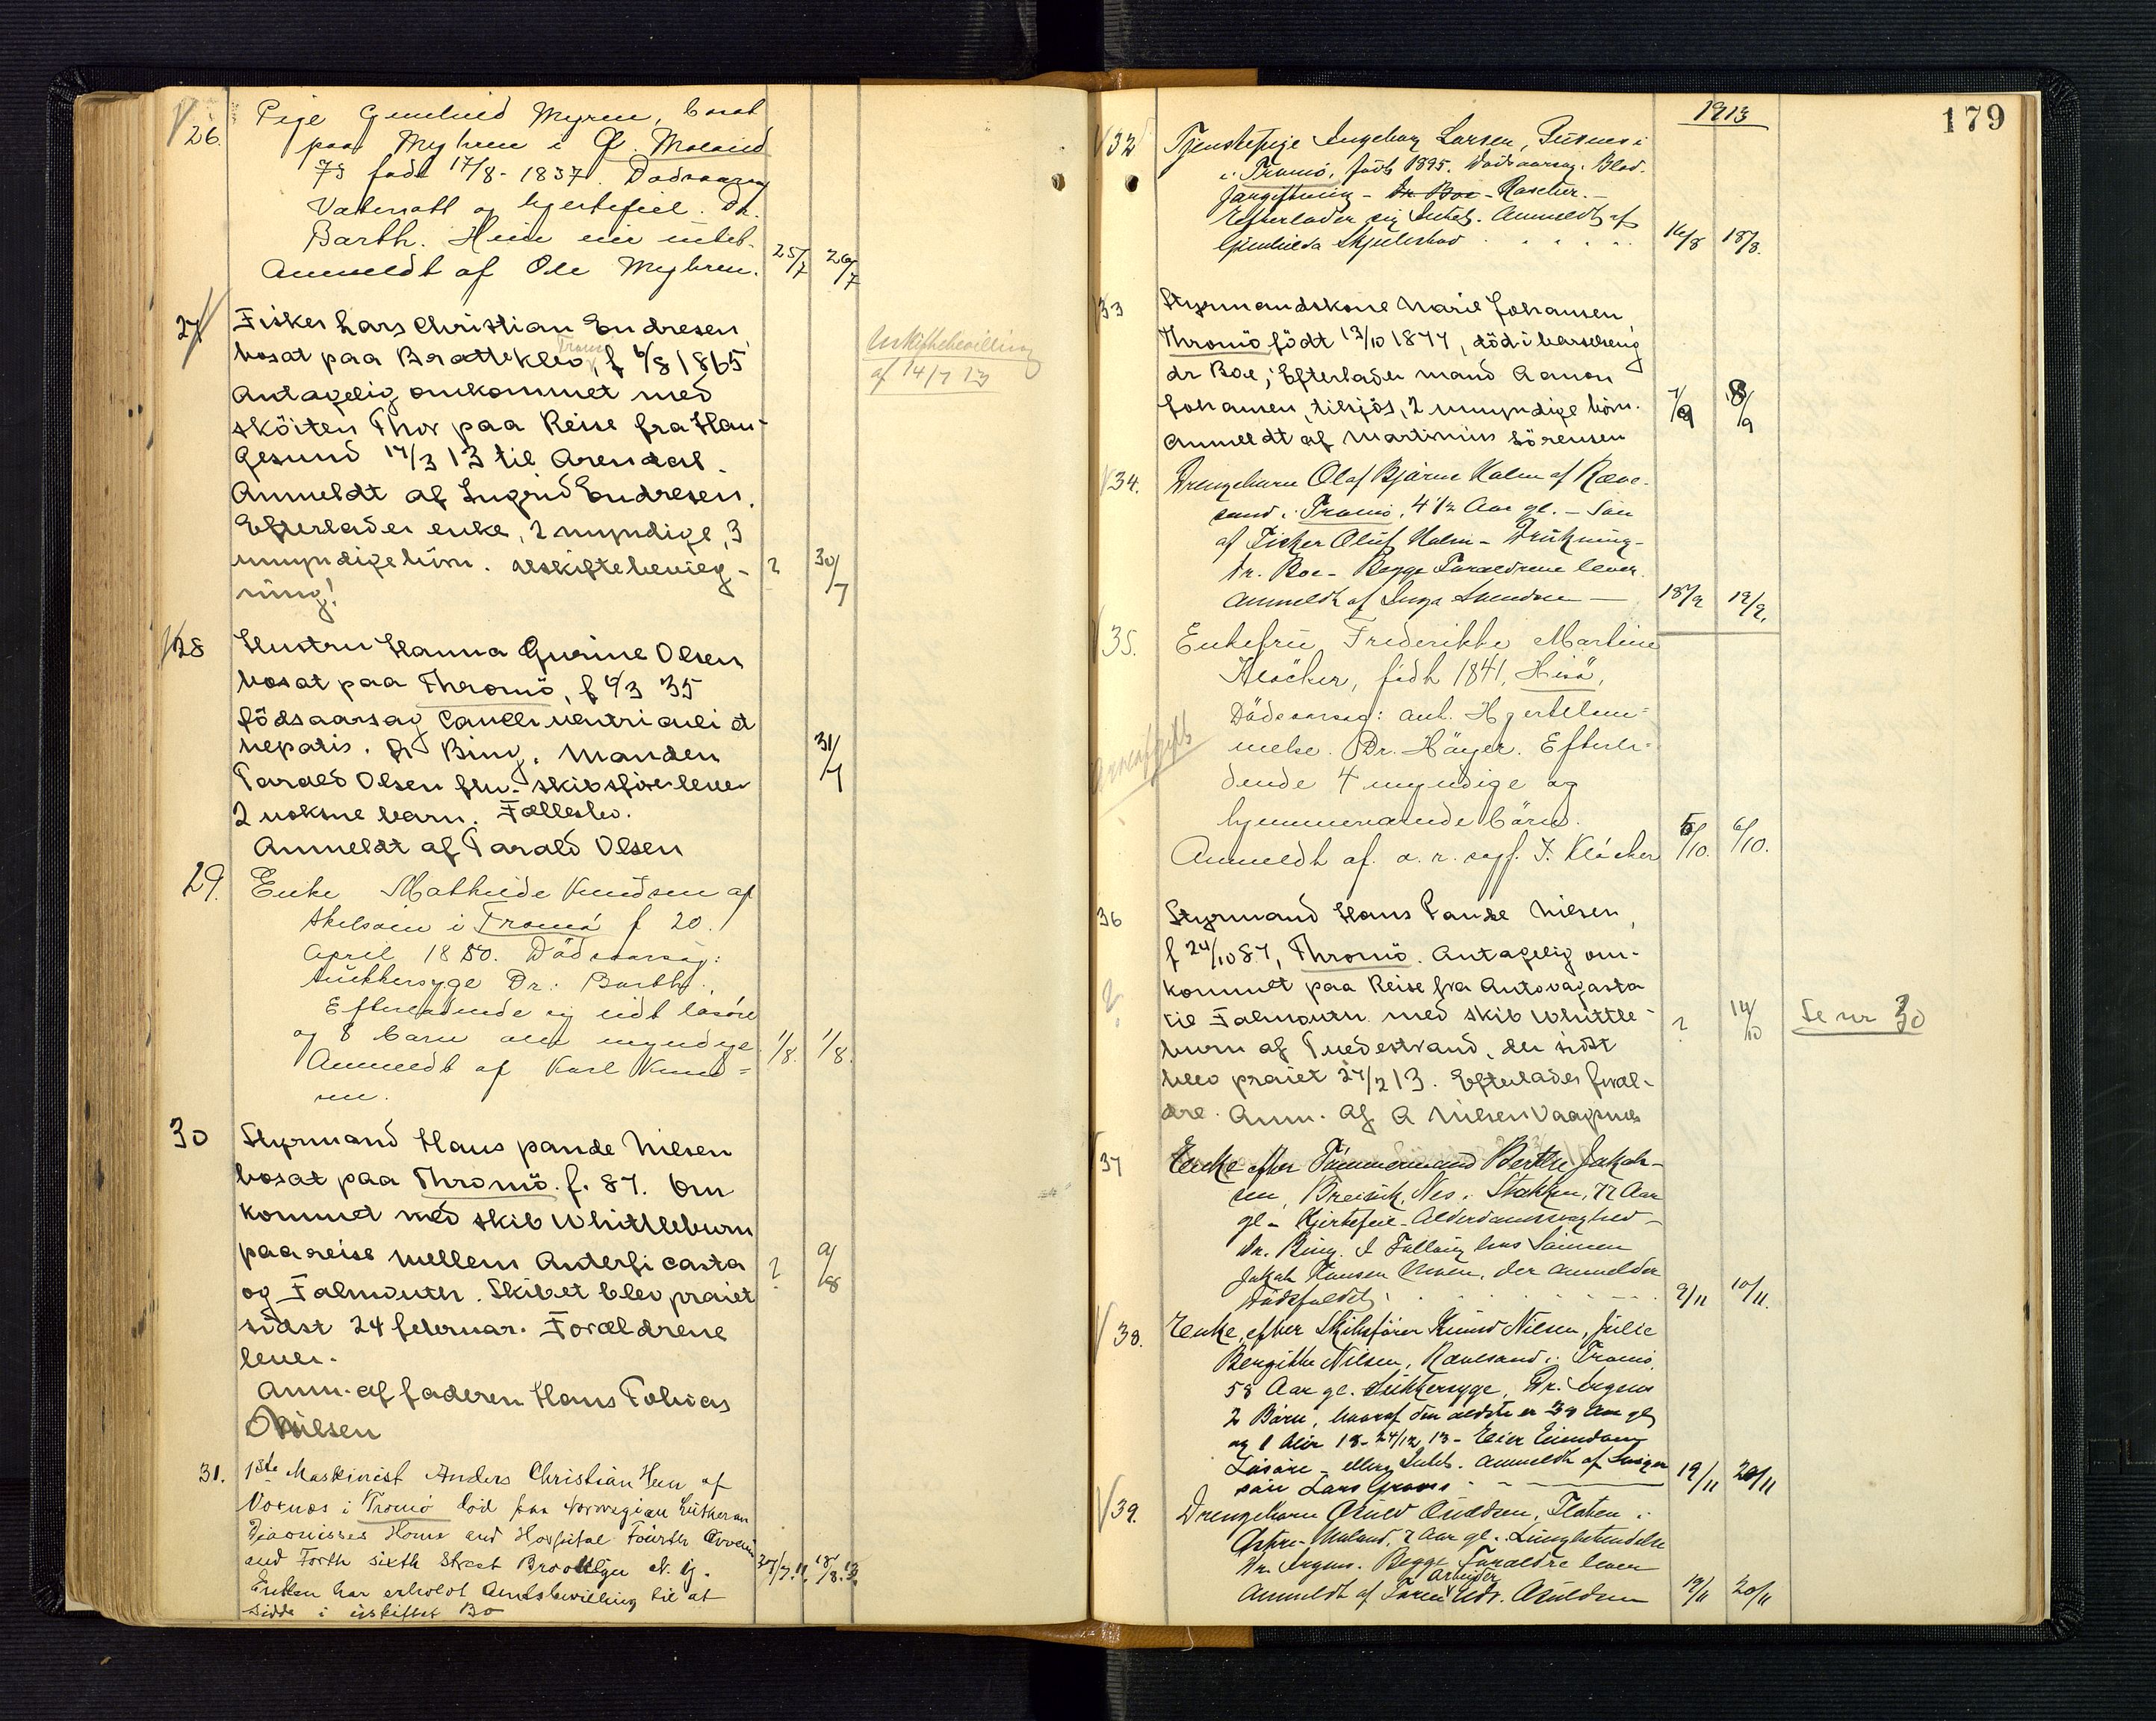 26. Pige Gunhild Myren, bosat
paa Myhren i Ø. Moland
73 født 17/8 - 1837. Dødsaarsag
Vatersott og hjertefeil. Dr.
Barth. Eiede intet.
Anmeldt af Ole Myhren. 25/7 26/7
27 Fisker Lars Christian Endresen
bosat paa Brattekleo, Tromø f 6/8 1865
Antagelig omkommet med
sköiten Thor paa Reise fra Hau-
gesund 14/3 13 til Arendal.
Anmeldt af Ingrid Endresen.
Efterlader enke, 2 myndige, 3
umyndige börn. Uskiftebevilg- ? 30/7
ning!
Uskiftebevilling
af 14/7 13
28 Hustru Hanna Gurine Olsen
bosat paa Thromö, f 4/3 35
födsaarsag Cancer ventriculi et
hepatis. Dr Bing. Manden 31/7
Tarald Olsen fhv. skibsförer lever
2 voksne barn. Fællesbo.
Anmeldt af Tarald Olsen
29. Enke Mathilde Knudsen af
i Tromö f 20.
April 1850. Dödsaarsag:
Sukkersyge Dr. Barth.
Efterladende sig lidt lösöre
og 8 barn alle myndige 1/8. 1/8.
Anmeldt af Karl Knud=
sen.
30 Styrmand Hans Pande Nilsen
bosat paa Thromö. f. 87. Om
kommet med skib Whittleburn
paa reise mellem Anterfi casta ? 9/8
og Falmouth. Skibet blev praiet
sidst 24 februar. Forældrene
lever.
Anm. af faderen Hans Tobias
Nilsen
31. 1ste Maskinist Anders Christian af
i Tromö död paa Norwegian Lutheran
Diaconisses Home and Hospital Fourth Avvenu
and Forth sixth Street Brooklyn N. Y.
Enken har erholdt Amtsbevilling til at
sidde i uskiftet Bo
1913
179
32 Tjenestepige Ingeborg Larsen,
i Tromö, född 1895. Dödsaarsag. Blod-
forgiftning - Dr. Boe - Rascher. -
Efterlader sig Intet. Anmeldt af
Gunhilda 16/8 18/8.
33 Styrmandskone Marie Johansen
Thromö födt 13/10 1877, död i barselseng
dr Boe, Efterlader mand Aanon
Johansen, tilsjös, 2 umyndige börn. 7/9 8/9
Anmeldt af Martinius Sörensen
34. Drengebarn Olaf Bjarne Holm af Ræve-
sand i Tromö, 4 1/2 Aar gl. - Sön
af Fisker Oluf Holm - Drukning -
Dr. Boe - Begge Foraeldrene lever.
Anmeldt af Inga Svendsen 18/9 19/9.
35. Enkefru Frederikke Martine
Klöcker, född 1841, Hisö,
Dödsaarsag: ant. Hjertelam=
melse. Dr. Höyer. Efterla=
dende 4 myndige og
hjemmeværende börn.
Anmeldt af o. r. sagf. J. Klöcker 5/10. 6/10.
Arveafgift
36 Styrmand Hans Pande Nilsen,
f 24/10 87, Thromö. Antagelig om-
kommet paa Reise fra Antovagasta
til Falmouth med skib Whittle- ? 14/10 Se nr 30
burn af Tvedestrand, der sidst
blev praiet 24/2 13. Efterlader foræl-
dre. Anm. af A Nilsen Vaagsnes
37 Enke efter Tömmermand Berthe Jakob-
sen, Breivik, Nes i Stokken, 77 Aar
gl - Hjertefeil - Alderdomssvaghed -
Dr. Bing. I Fællig hos Sönnen
Jakob Hansen, der anmelder
Dödsfaldet. 9/11 10/11.
38. Enke efter Skibsförer Knud Nilsen, Julie
Bergithe Nilsen, Rævesand i Tromö,
58 Aar gl. Sukkersyge, Dr. Jrgens
2 Börn, hvoraf den ældste er 39 Aar gl
og 1 blir 18 - 24/12 13 - Eier Eiendom
Lösöre - ellers Intet. Anmeldt af Sviger
sön Lars 19/11 20/11
39. Drengebarn Osuldsen, i
Östre Moland, 7 Aar gl. Lungebetendelse
Dr. Jrgens. Begge Foraeldre lever
Anmeldt af Faren Arbeider Edv. Osuldsen 19/11 20/11